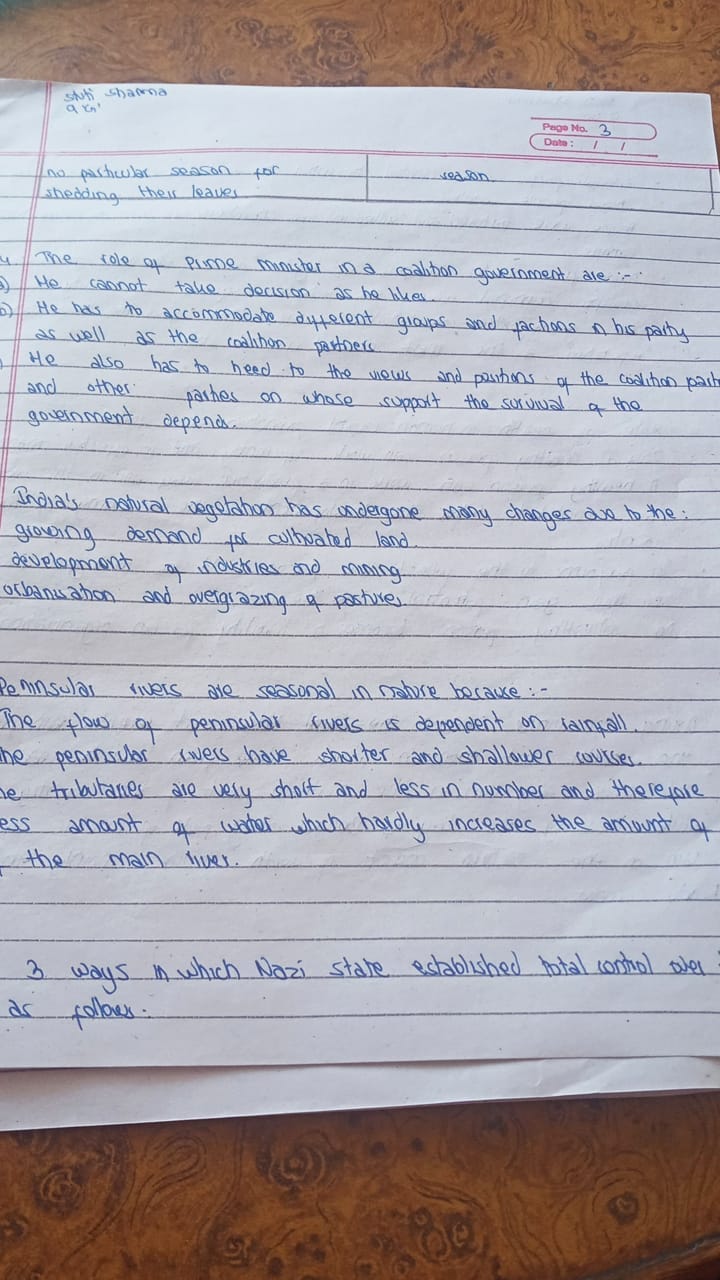 stuti sharma
9
Page No. 3
Date: / /
no particular season for
season
shedding their leaves
The role of Prime minister in a coalition government are :-
He cannot take decision as he likes.
b) He has to accommodate different groups and factions in his party
as well as the coalition partners
He also has to heed to the views and positions of the coalition part
and other parties on whose support the survival of the
government depends.
India's natural vegetation has undergone many changes due to the:
growing demand for cultivated land
development of industries and mining
urbanisation and overgrazing of pastures
Peninsular rivers are seasonal in nature because :-
The flow of peninsular rivers is dependent on rainfall.
he peninsular rivers have shorter and shallower courses.
he tributaries are very short and less in number and therefore
ess amount of water which hardly increases the amount of
the main river.
3 ways in which Nazi state established total control over
as follows.